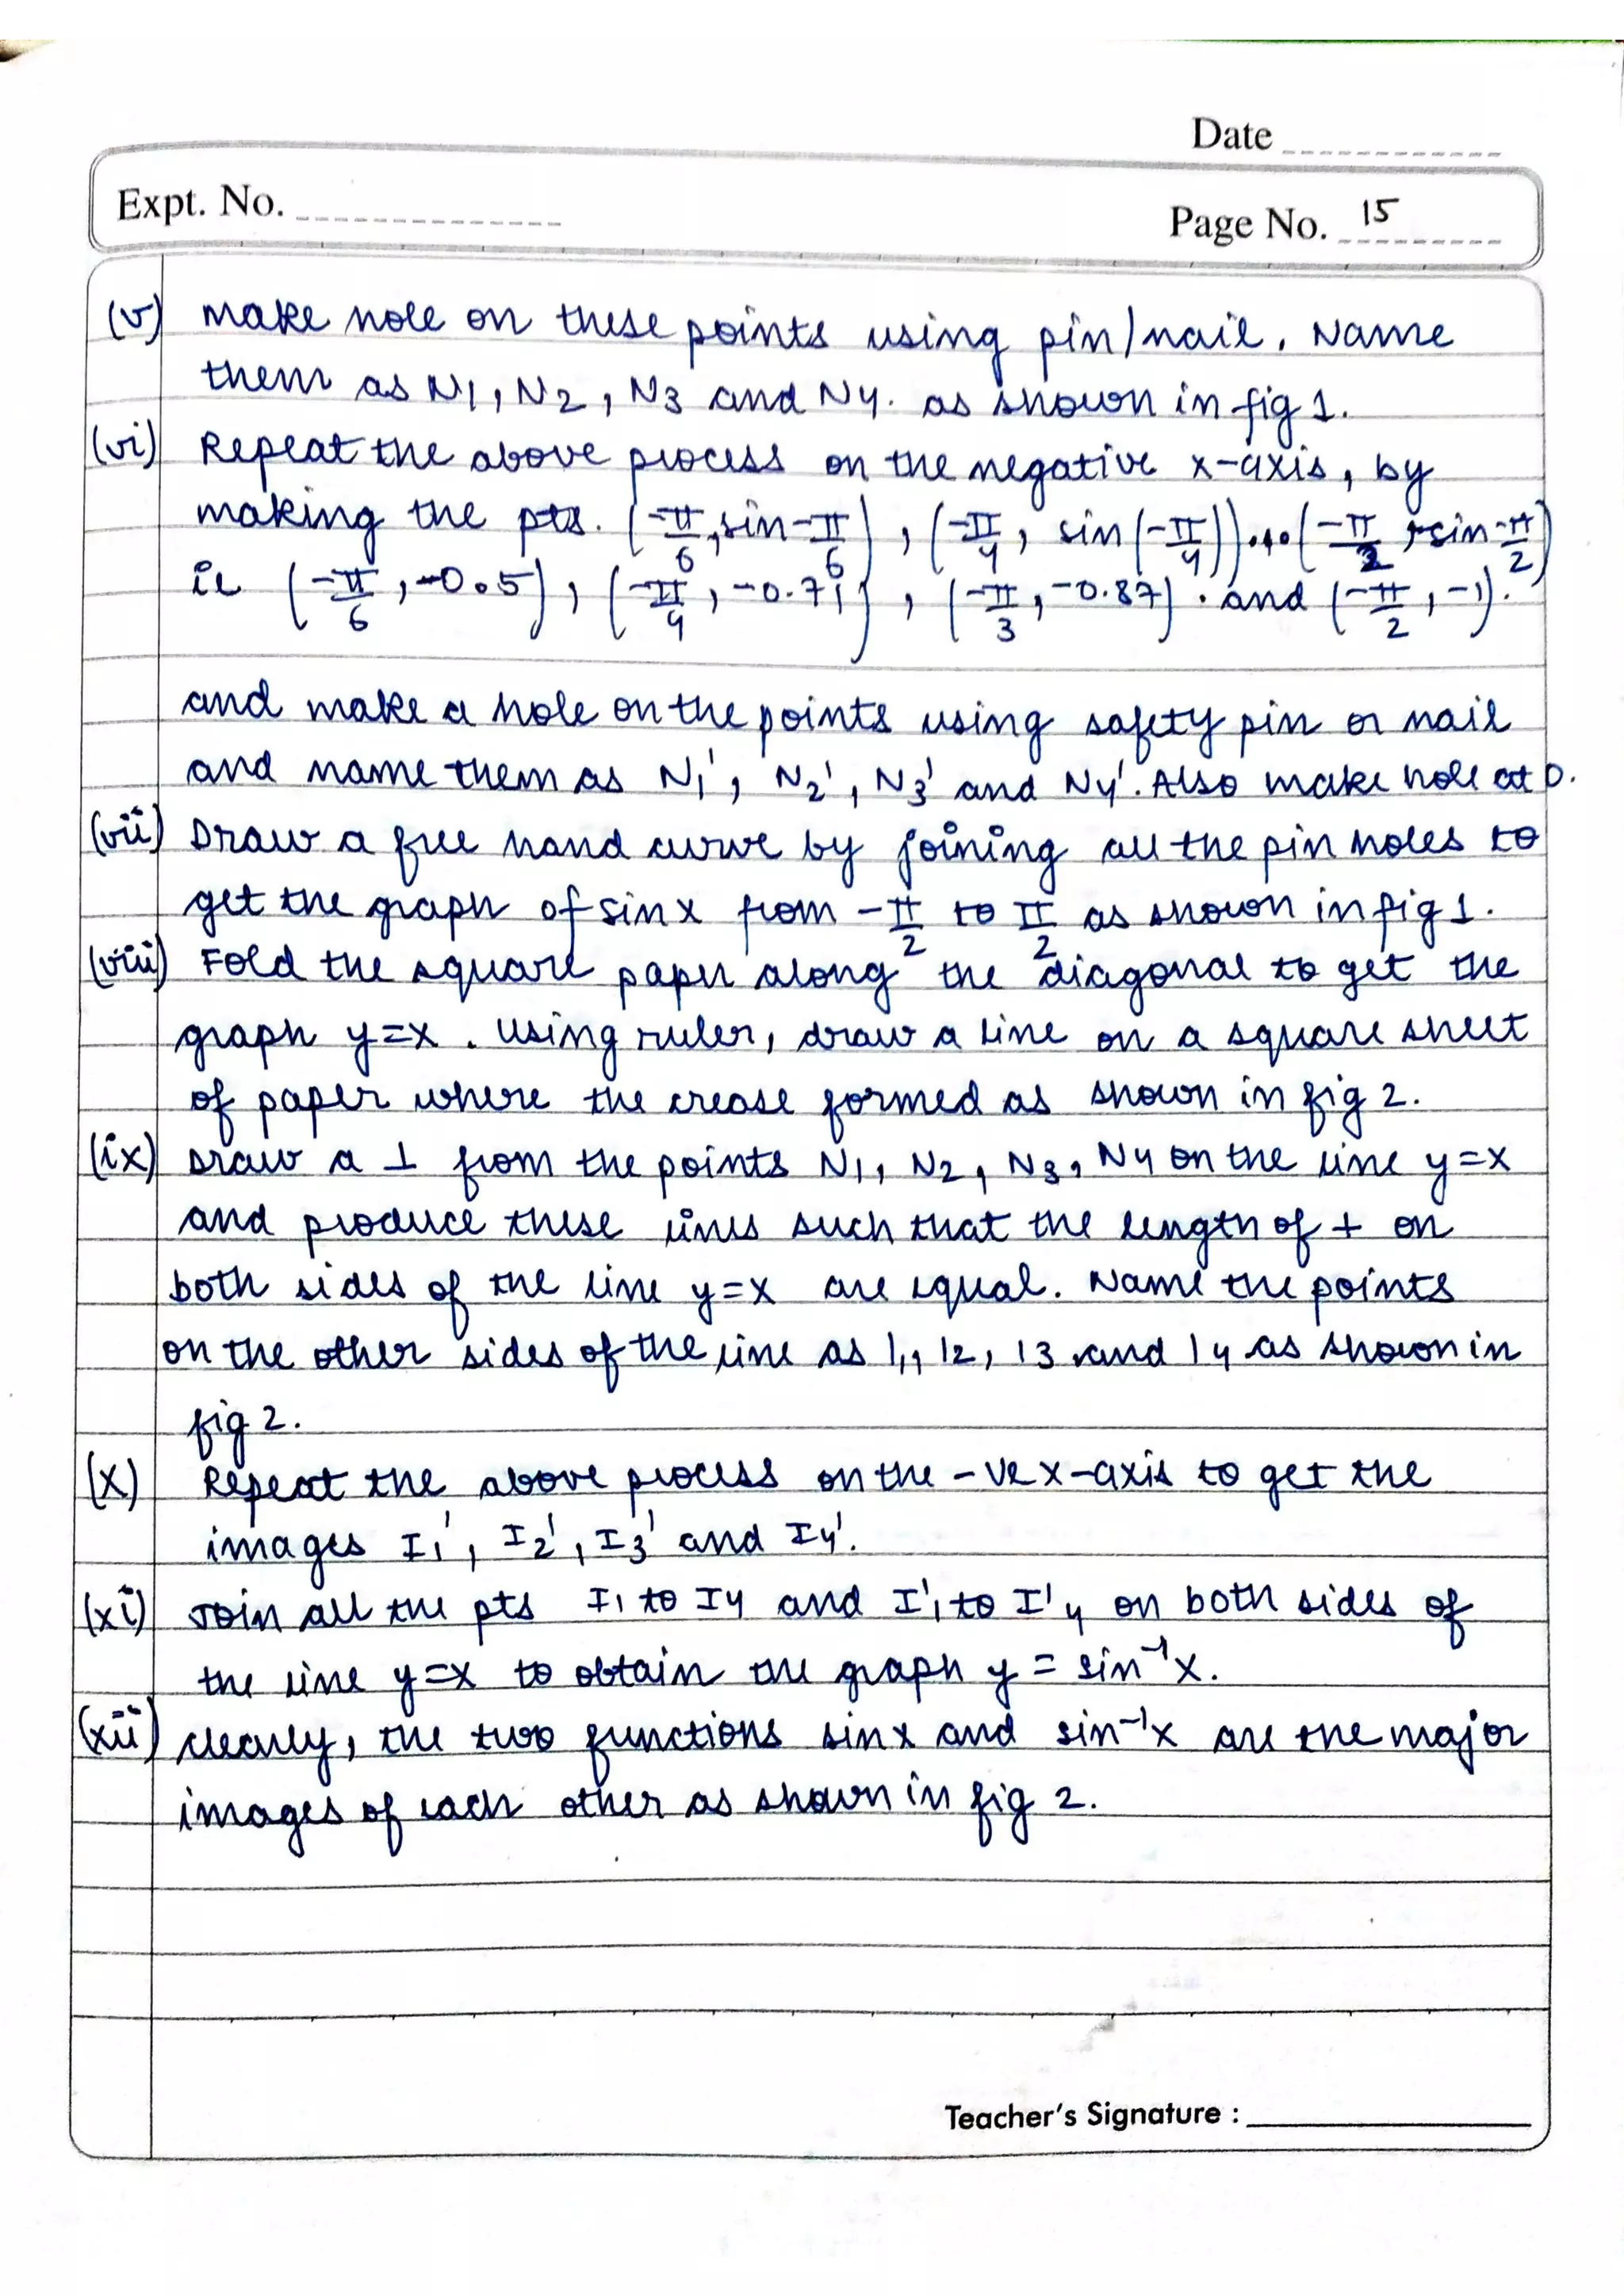 Date
Expt. No.
Page No. 15
(v) make hole on these points using pin/nail. Name
them as N1, N2, N3 and N4. as shown in fig 1.
(vi) Repeat the above process on the negative x-axis, by
making the pts. (-π/6, sin -π/6), (-π/4, sin(-π/4))...(-π/2, sin -π/2)
ie (-π/6, -0.5), (-π/4, -0.71), (-π/3, -0.87). and (-π/2, -1).
and make a hole on the points using safety pin or nail
and name them as N1', N2', N3' and N4'. Also make hole at O.
(vii) Draw a free hand curve by joining all the pin holes to
get the graph of sinx from -π/2 to π/2 as shown in fig 1.
(viii) Fold the square paper along the diagonal to get the
graph y=x. Using ruler, draw a line on a square sheet
of paper where the crease formed as shown in fig 2.
(ix) Draw a ⊥ from the points N1, N2, N3, N4 on the line y=x
and produce these lines such that the length of + on
both sides of the line y=x are equal. Name the points
on the other sides of the line as I1, I2, I3 and I4 as shown in
fig 2.
(x) Repeat the above process on the -ve x-axis to get the
images I1', I2', I3' and I4'.
(xi) Join all the pts I1 to I4 and I'1 to I'4 on both sides of
the line y=x to obtain the graph y = sin⁻¹x.
(xii) clearly, the two functions sinx and sin⁻¹x are the major
images of each other as shown in fig 2.
Teacher's Signature :